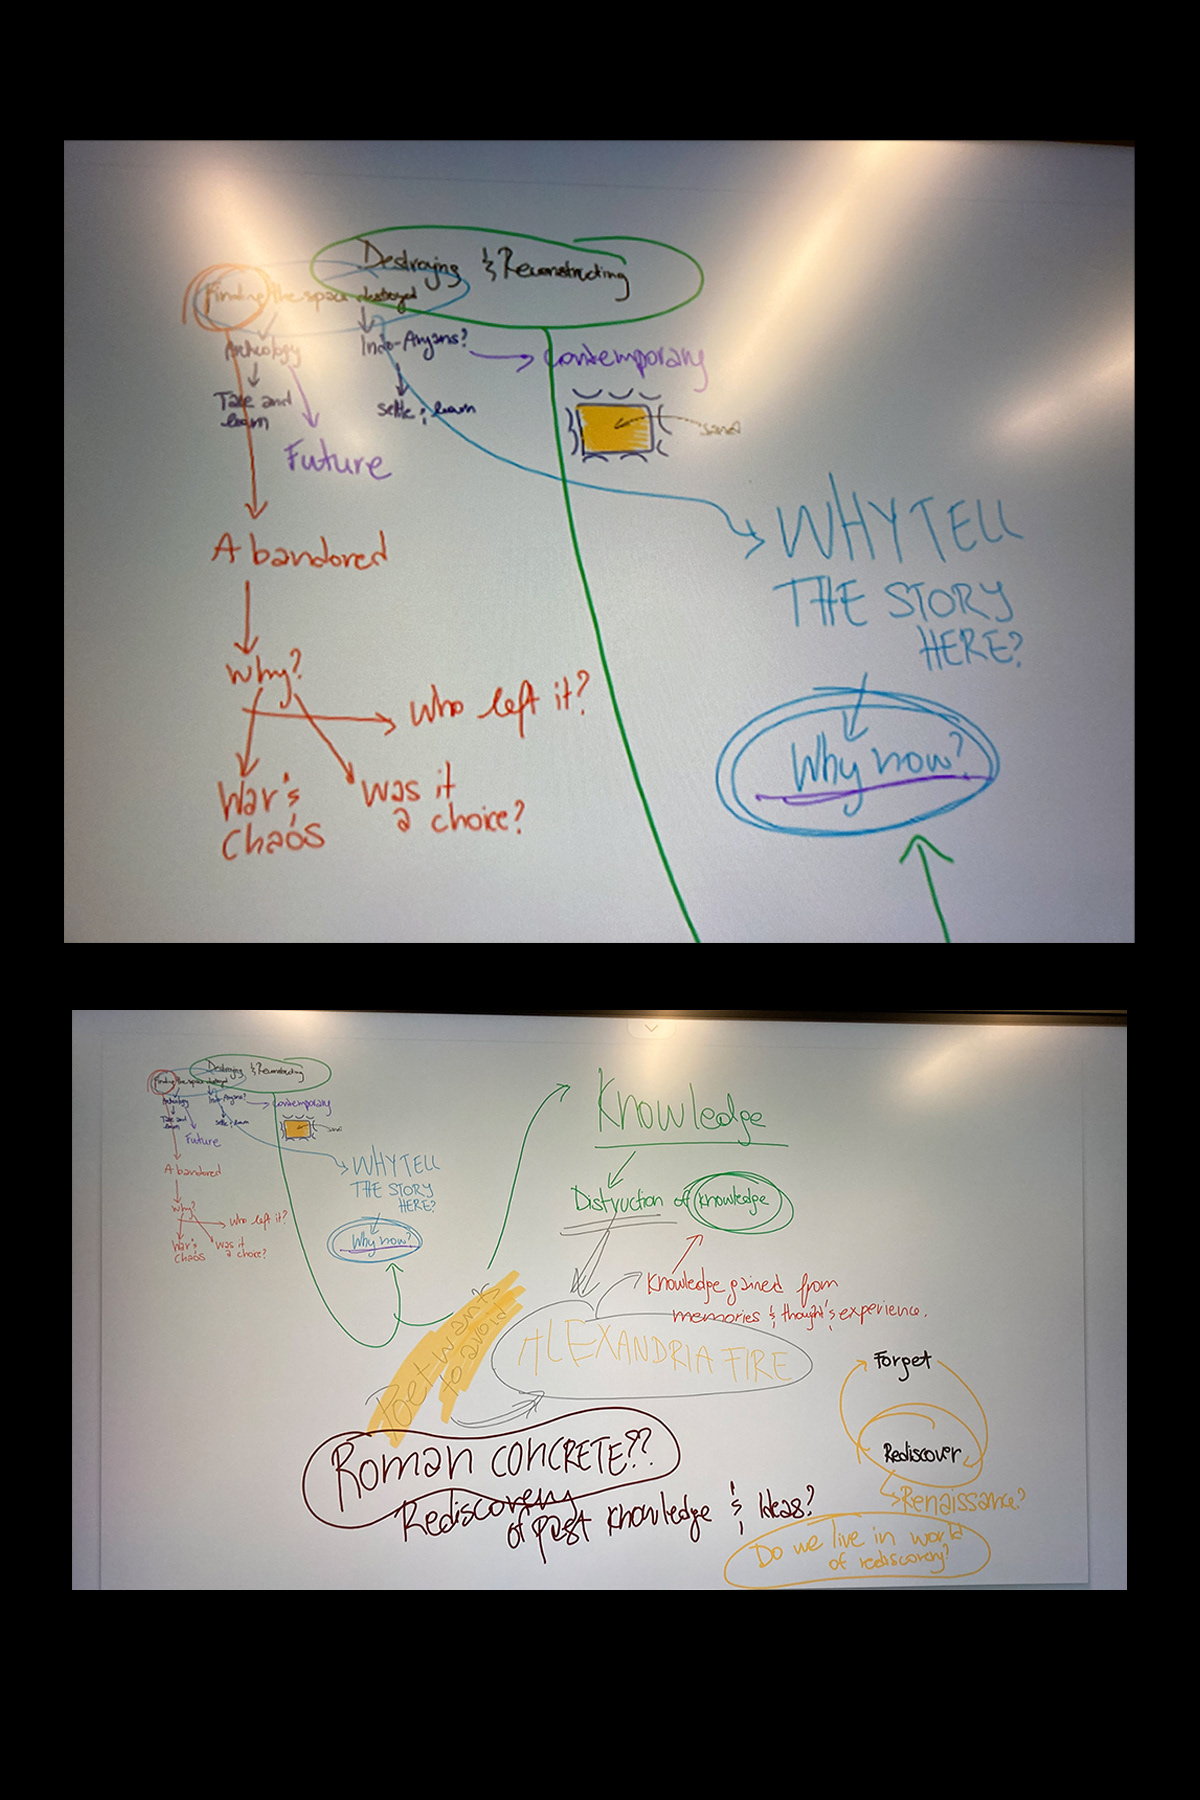 Destroying & Reconstructing
Finding the space destroyed
Archeology
Indo-Aryans?
contemporary
Take and
learn
settle & learn
sand
Future
Abandored
Why?
Who left it?
War's
chaos
Was it
a choice?
WHY TELL
THE STORY
HERE?
Why now?
Destroying & Reconstructing
Finding the space destroyed
Archeology
Indo-Aryans?
contemporary
Take and
learn
settle & learn
sand
Future
Abandored
Why?
Who left it?
War's
chaos
Was it
a choice?
WHY TELL
THE STORY
HERE?
Why now?
Knowledge
Distruction of knowledge
Knowledge gained from
memories & thought's experience.
Poet wants
to avoid
ALEXANDRIA FIRE
Forget
Rediscover
Renaissance?
Roman CONCRETE??
Rediscovery
of past knowledge & Ideas?
Do we live in world
of rediscovery?